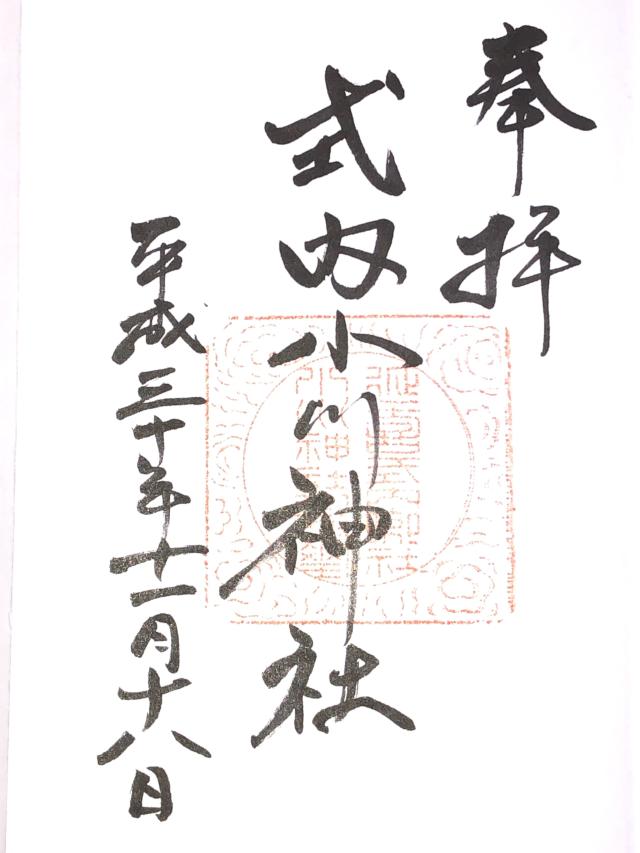 奉拝
式内小川神社
平成三十年十一月十八日